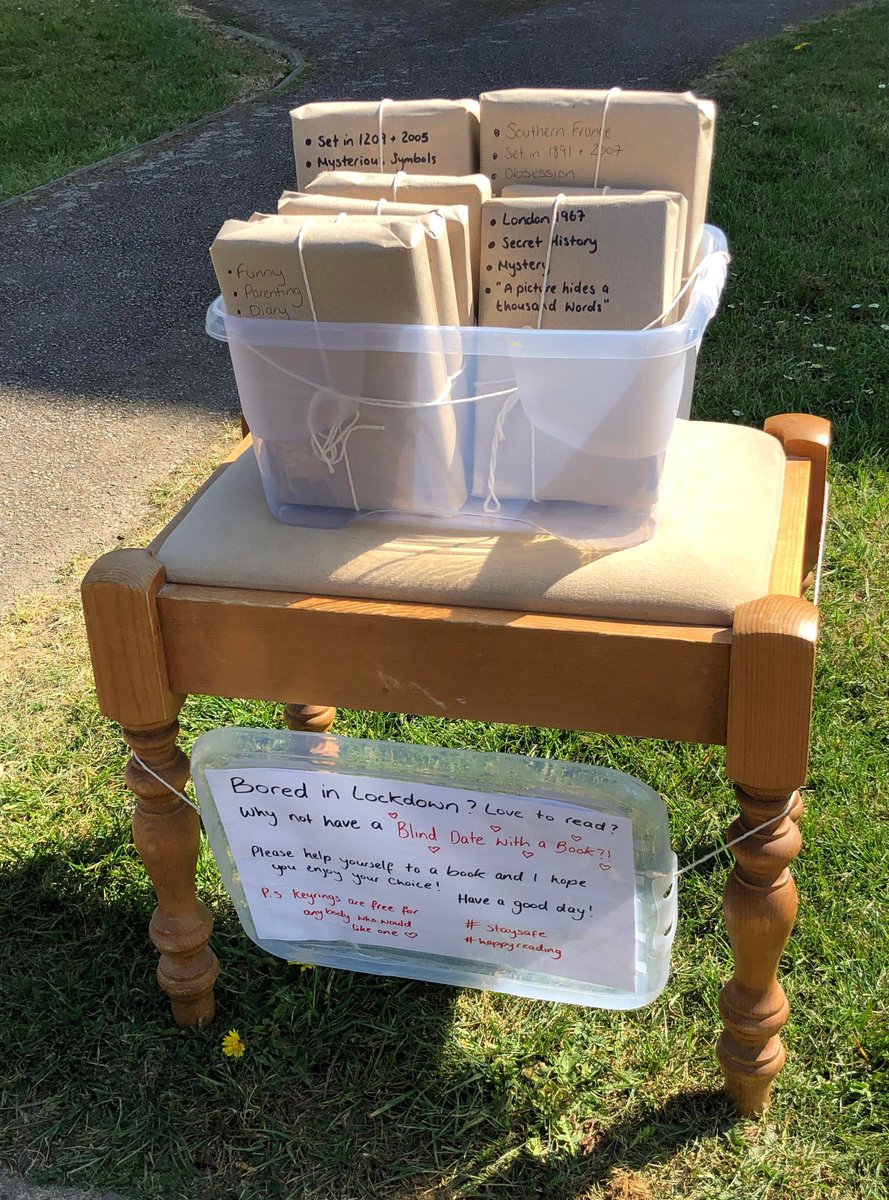 • Set in 1209 + 2005
• Mysterious Symbols
• Southern France
• Set in 1891 + 2007
• Obsession
• Funny
• Parenting
• Diary
• London 1967
• Secret History
• Mystery
• "A picture hides a
thousand words"
Bored in Lockdown? Love to read?
Why not have a Blind Date with a Book?!
Please help yourself to a book and I hope
you enjoy your choice!
Have a good day!
P.S Keyrings are free for
anybody who would
like one ♡
# staysafe
# happyreading